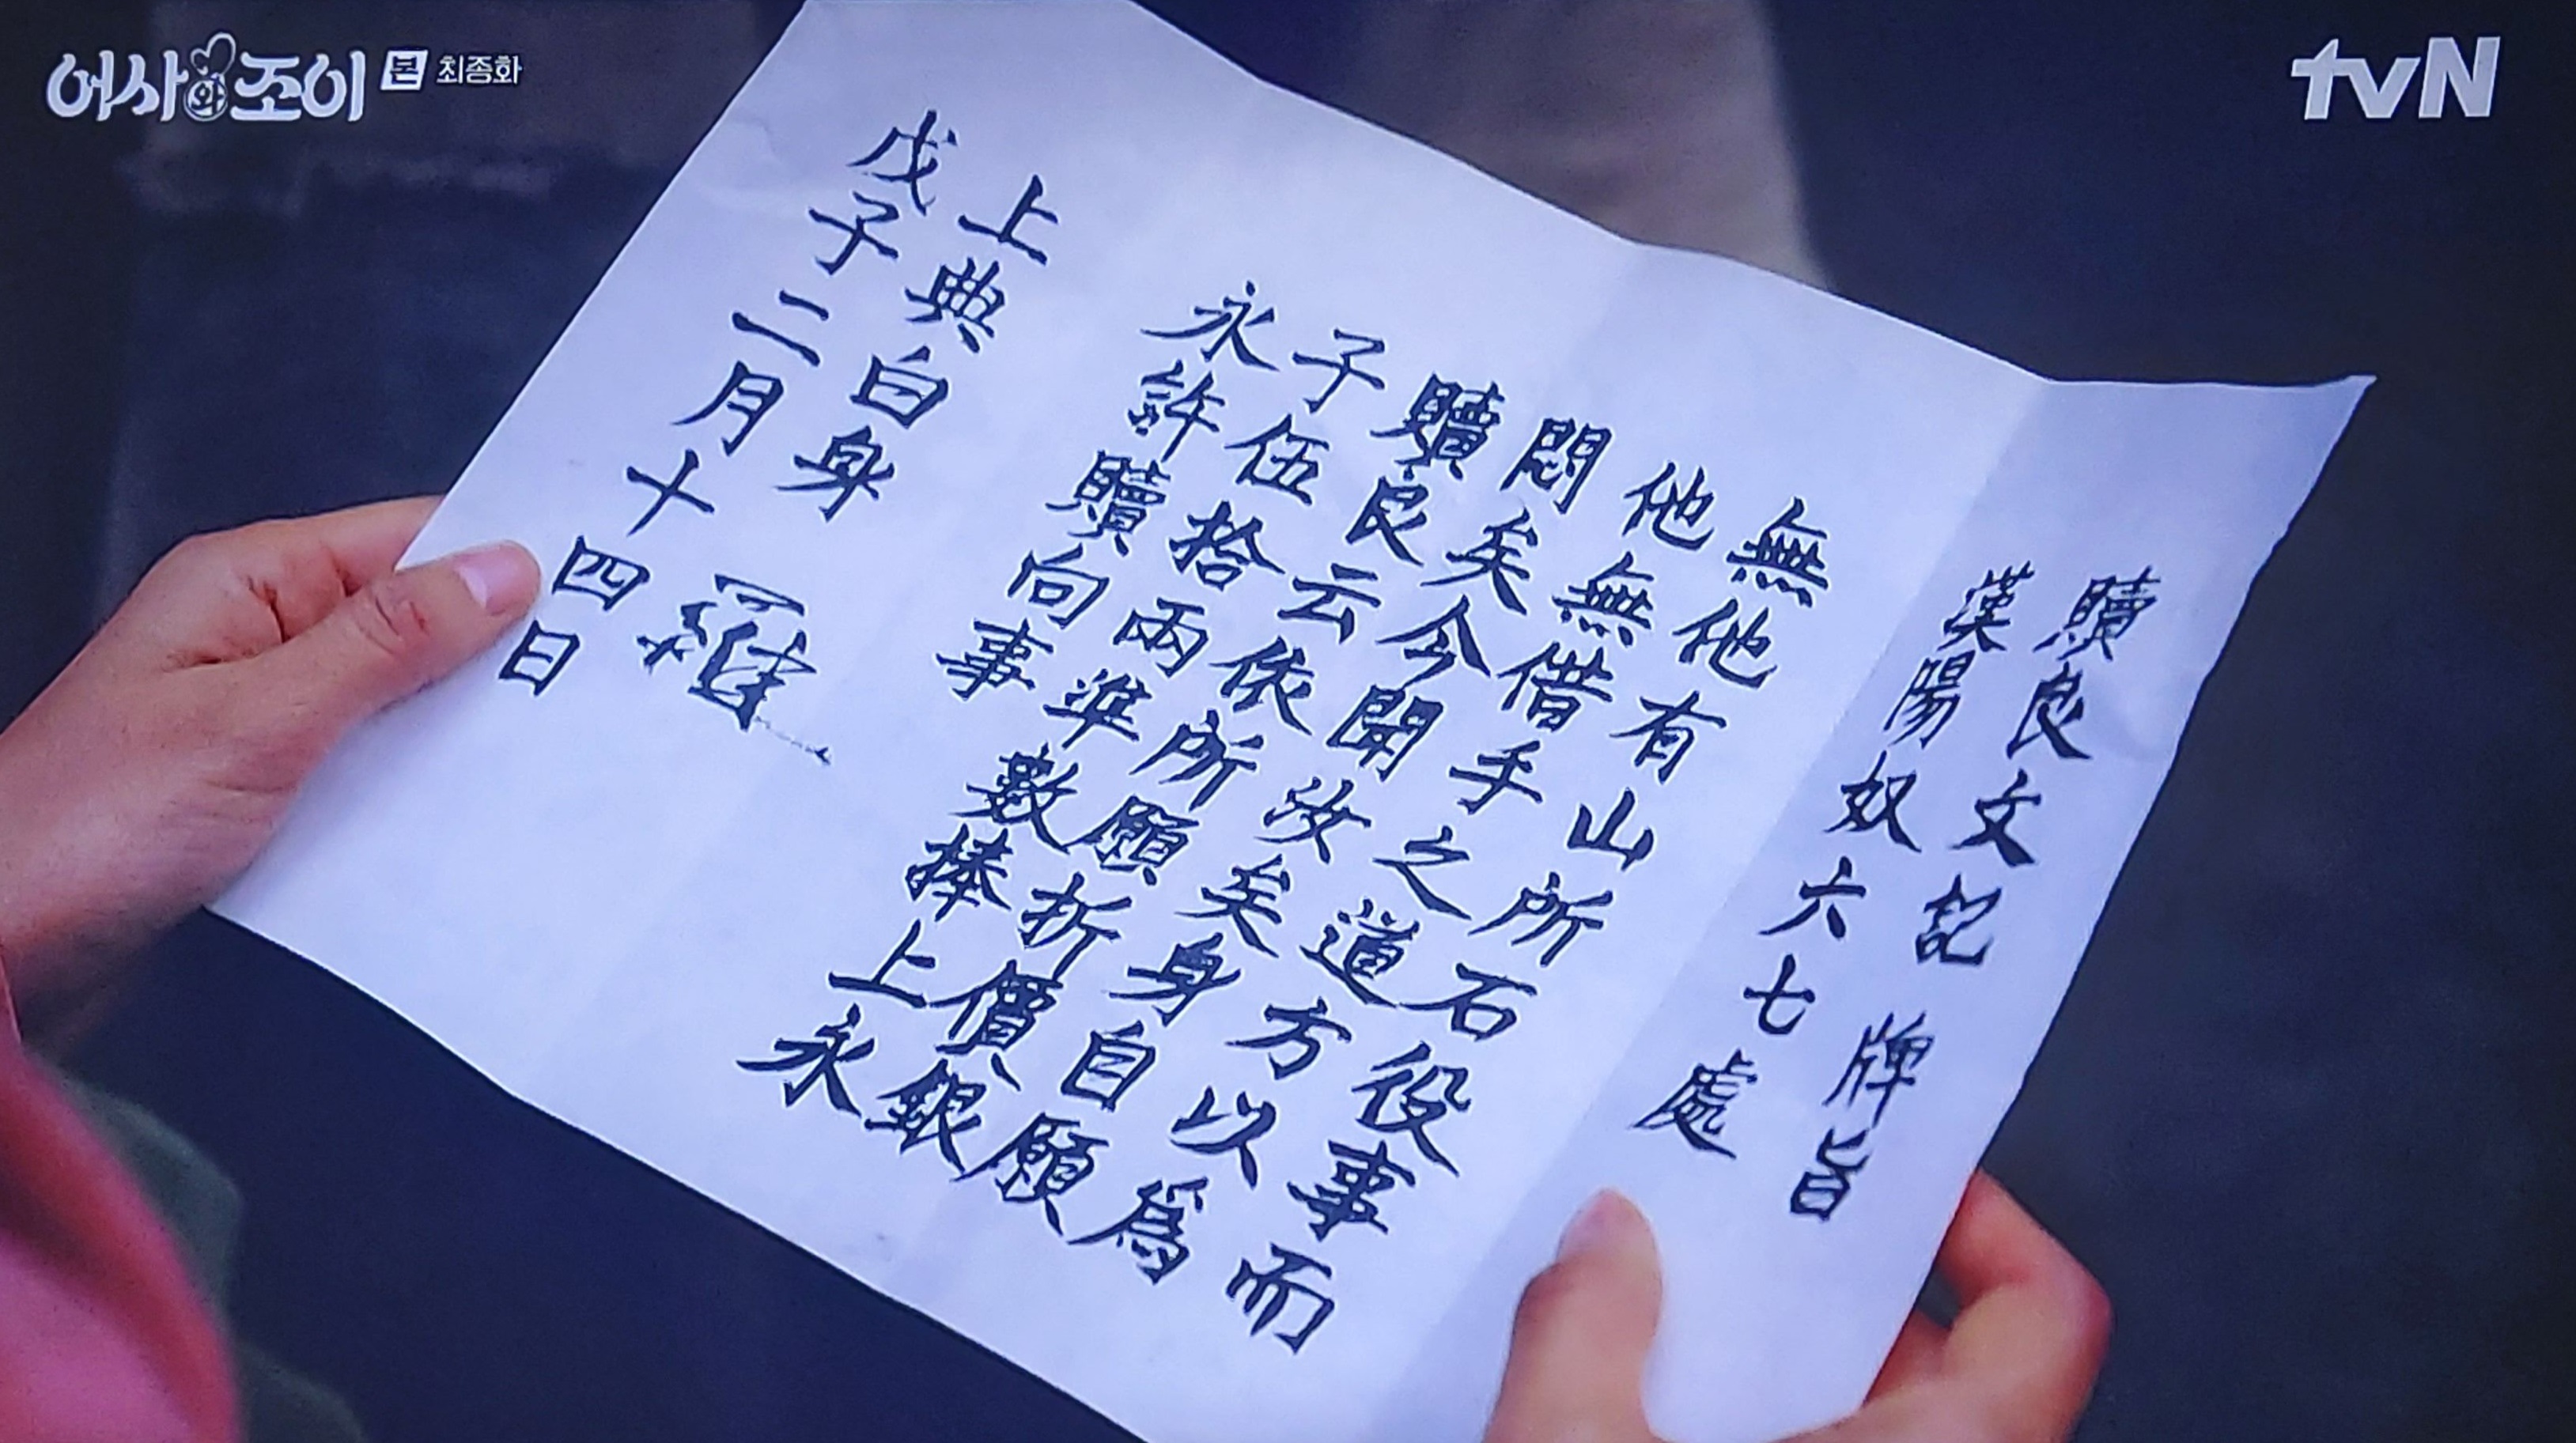 어사와조이 본 최종화
tvN
贖良文記 牌旨
漢陽奴六七處
無他有山所石役事而
他無借手之道方以爲
悶矣今聞汝矣身自願
贖良云依所願折價銀
子伍拾兩準數捧上永
永許贖向事
上典白身
戊子二月十四日